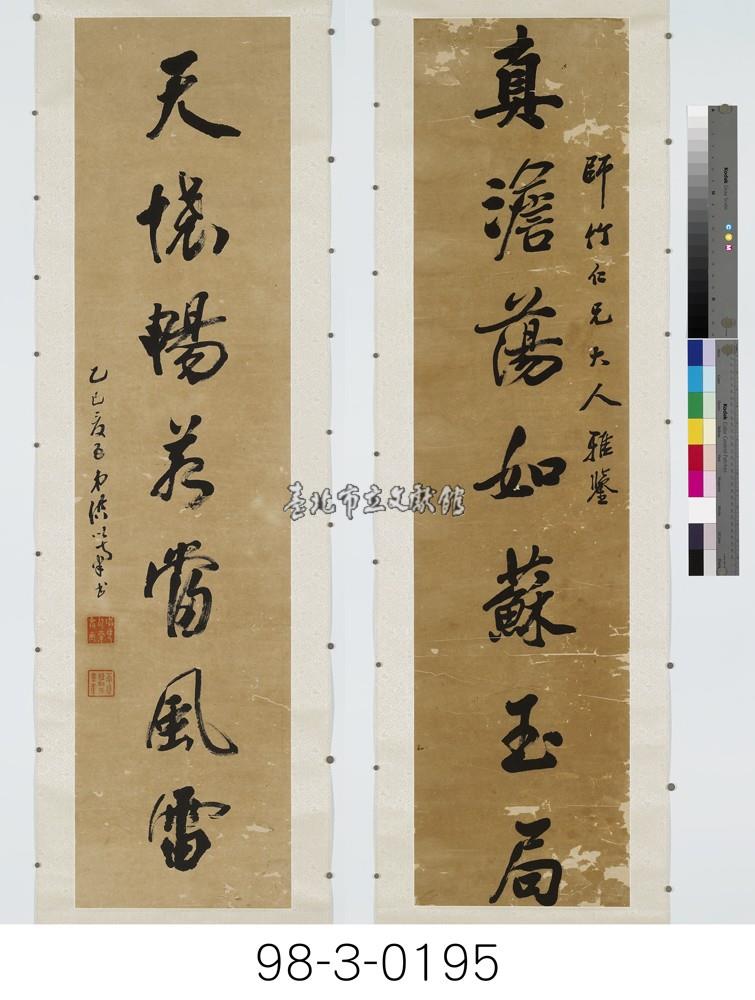 真澹蕩如蘇玉局
師竹仁兄大人雅鑒
天懷暢若當風雷
乙巳夏五弟洪以南書
臺北市立文獻館
Kodak
Kodak
98-3-0195